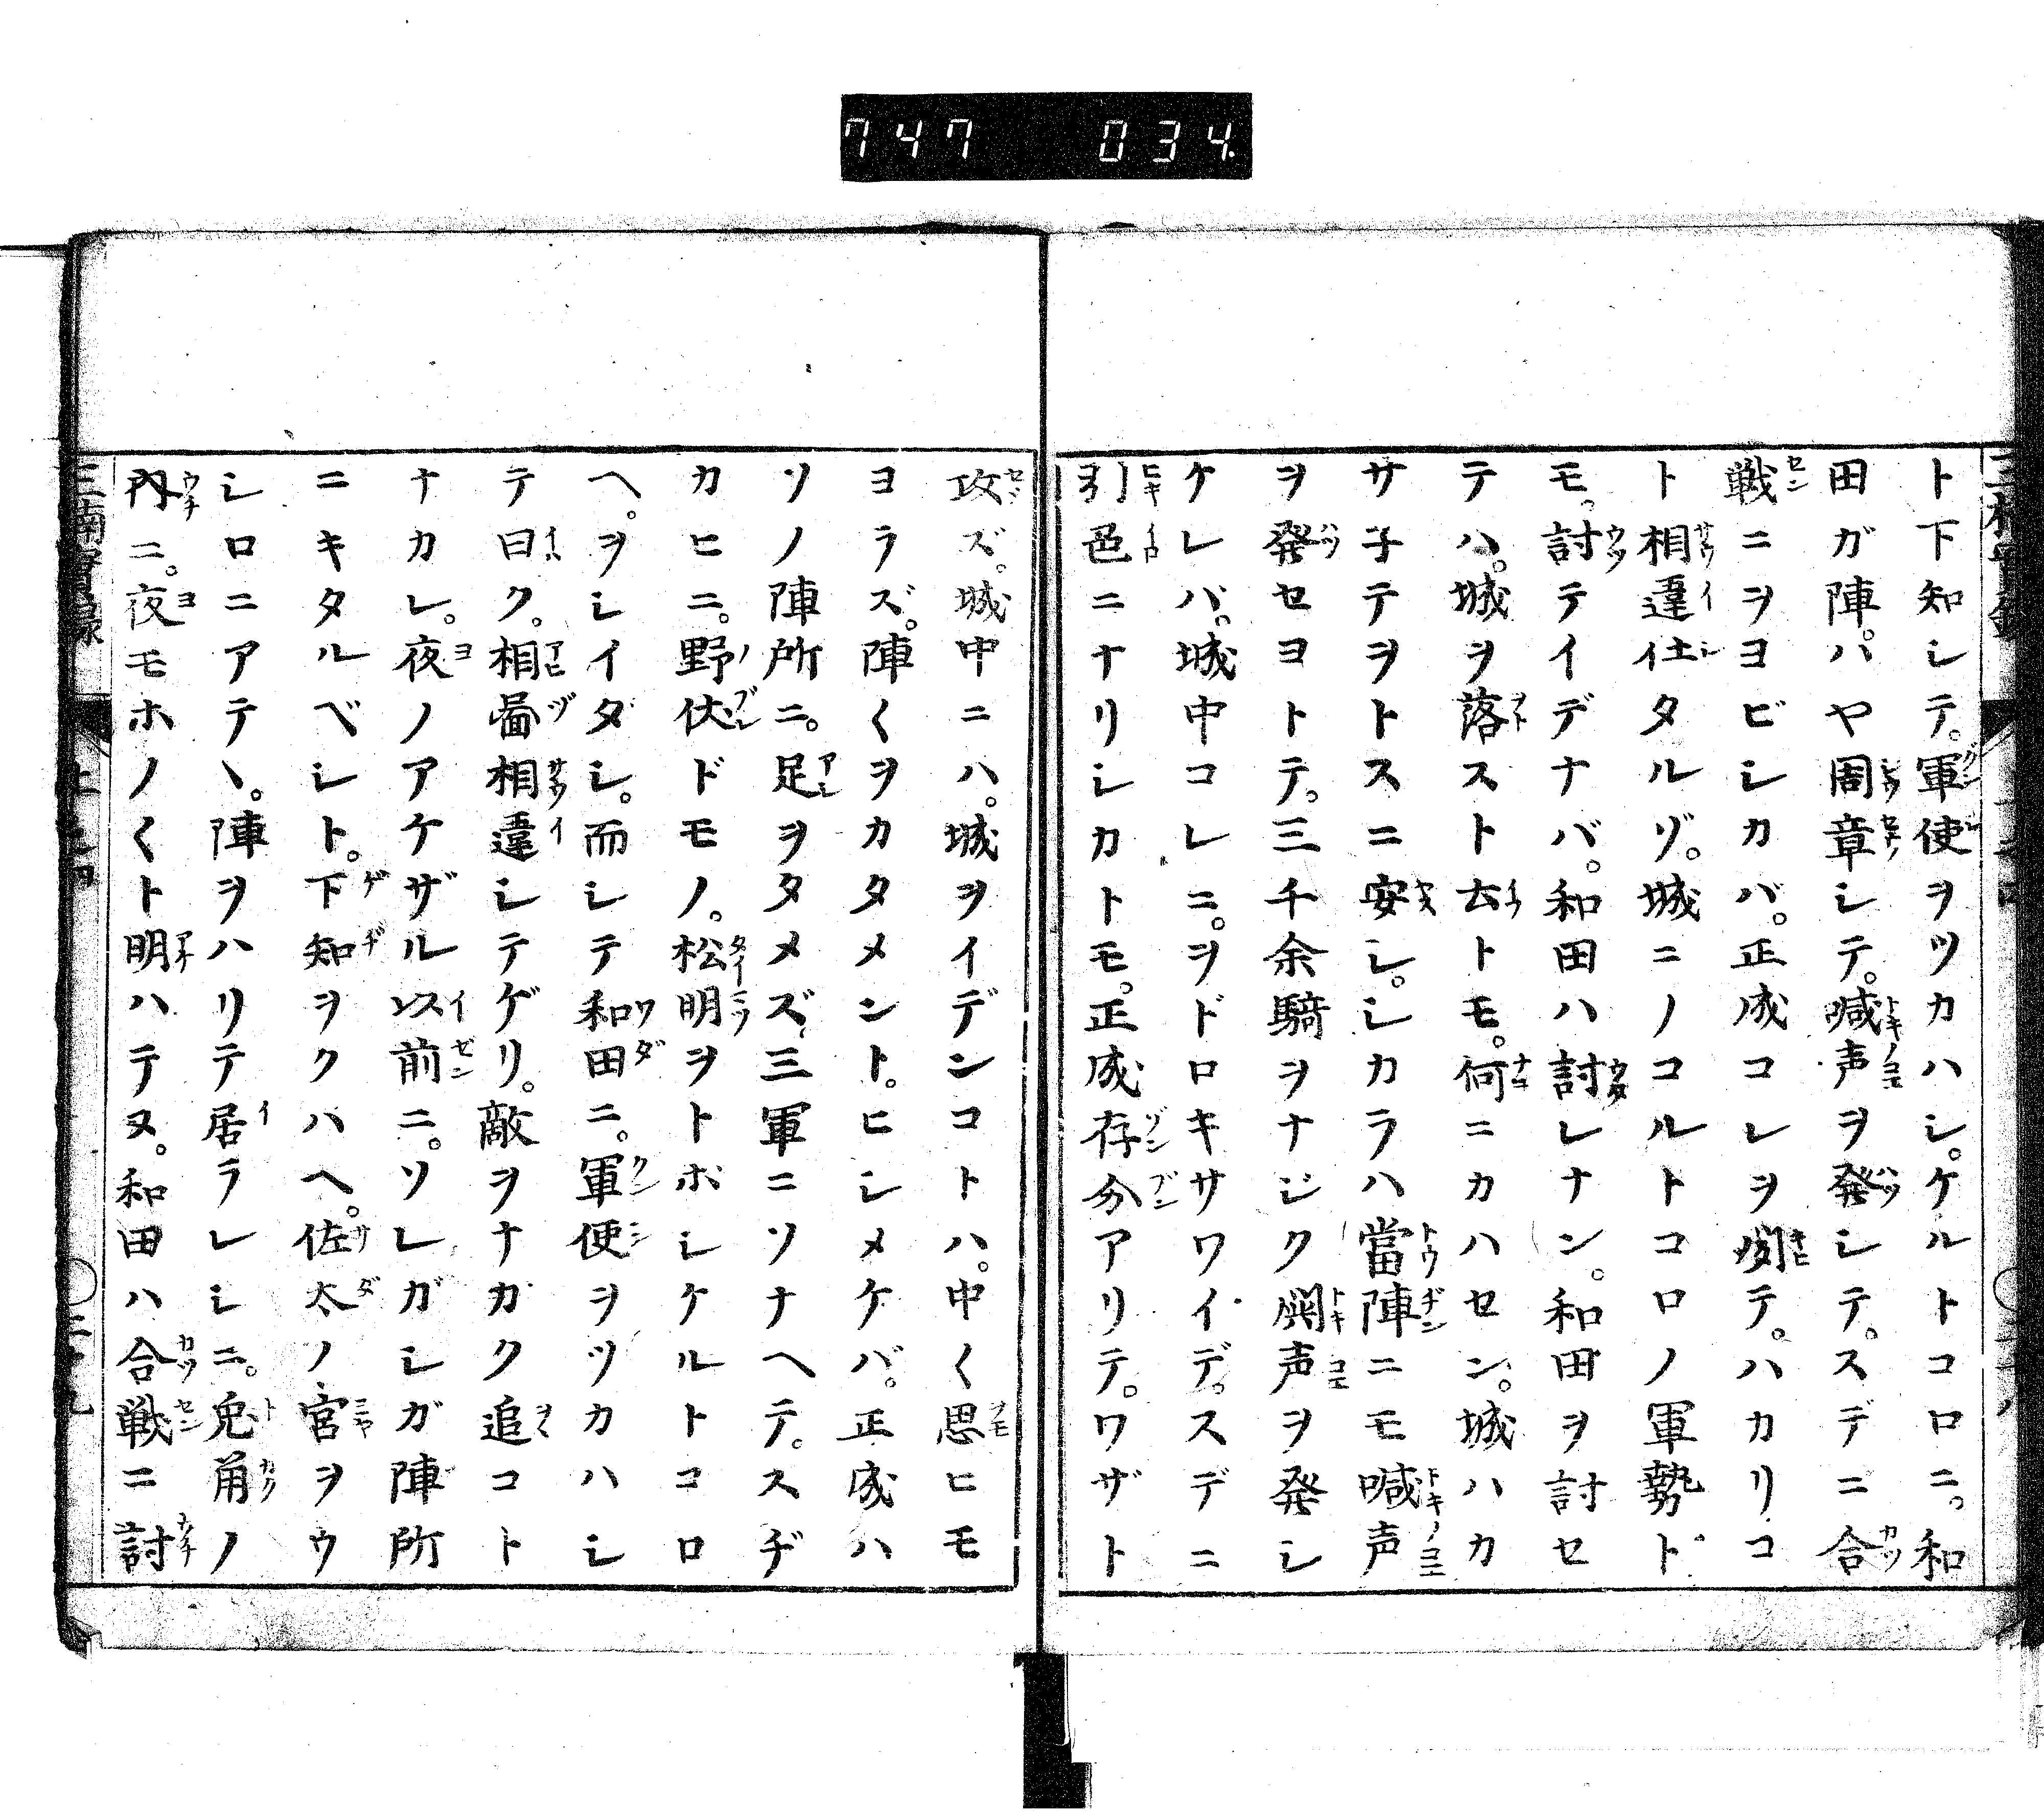 747 034
ト下知シテ。軍使ヲツカハシ。ケルトコロニ。和
田ガ陣。ハヤ周章シテ。喊声ヲ発シテ。スデニ合
戦ニヲヨビシカバ。正成コレヲ聞テ。ハカリコ
ト相違仕タルゾ。城ニノコルトコロノ軍勢ト
モ。討テイデナバ。和田ハ討レナン。和田ヲ討セ
テハ。城ヲ落スト云トモ。何ニカハセン。城ハカ
サ子テヲトスニ安シ。シカラハ當陣ニモ喊声
ヲ発セヨトテ。三千余騎ヲナジク閧声ヲ発シ
ケレバ。城中コレニ。ヲドロキサワイデ。スデニ
引色ニナリシカトモ。正成存分アリテ。ワザト
攻ズ。城中ニハ。城ヲイデンコトハ。中〱思ヒモ
ヨラズ。陣〱ヲカタメント。ヒシメケバ。正成ハ
ソノ陣所ニ。足ヲタメズ。三軍ニソナヘテ。スヂ
カヒニ。野伏ドモノ。松明ヲトボシケルトコロ
ヘ。ヲシイダシ。而シテ和田ニ。軍使ヲツカハシ
テ曰ク。相圖相違シテゲリ。敵ヲナカク追コト
ナカレ。夜ノアケザル以前ニ。ソレガシガ陣所
ニキタルベシト。下知ヲクハヘ。佐太ノ宮ヲウ
シロニアテヽ。陣ヲハリテ居ラレシニ。兎角ノ
内ニ。夜モホノ〱ト明ハテヌ。和田ハ合戦ニ討